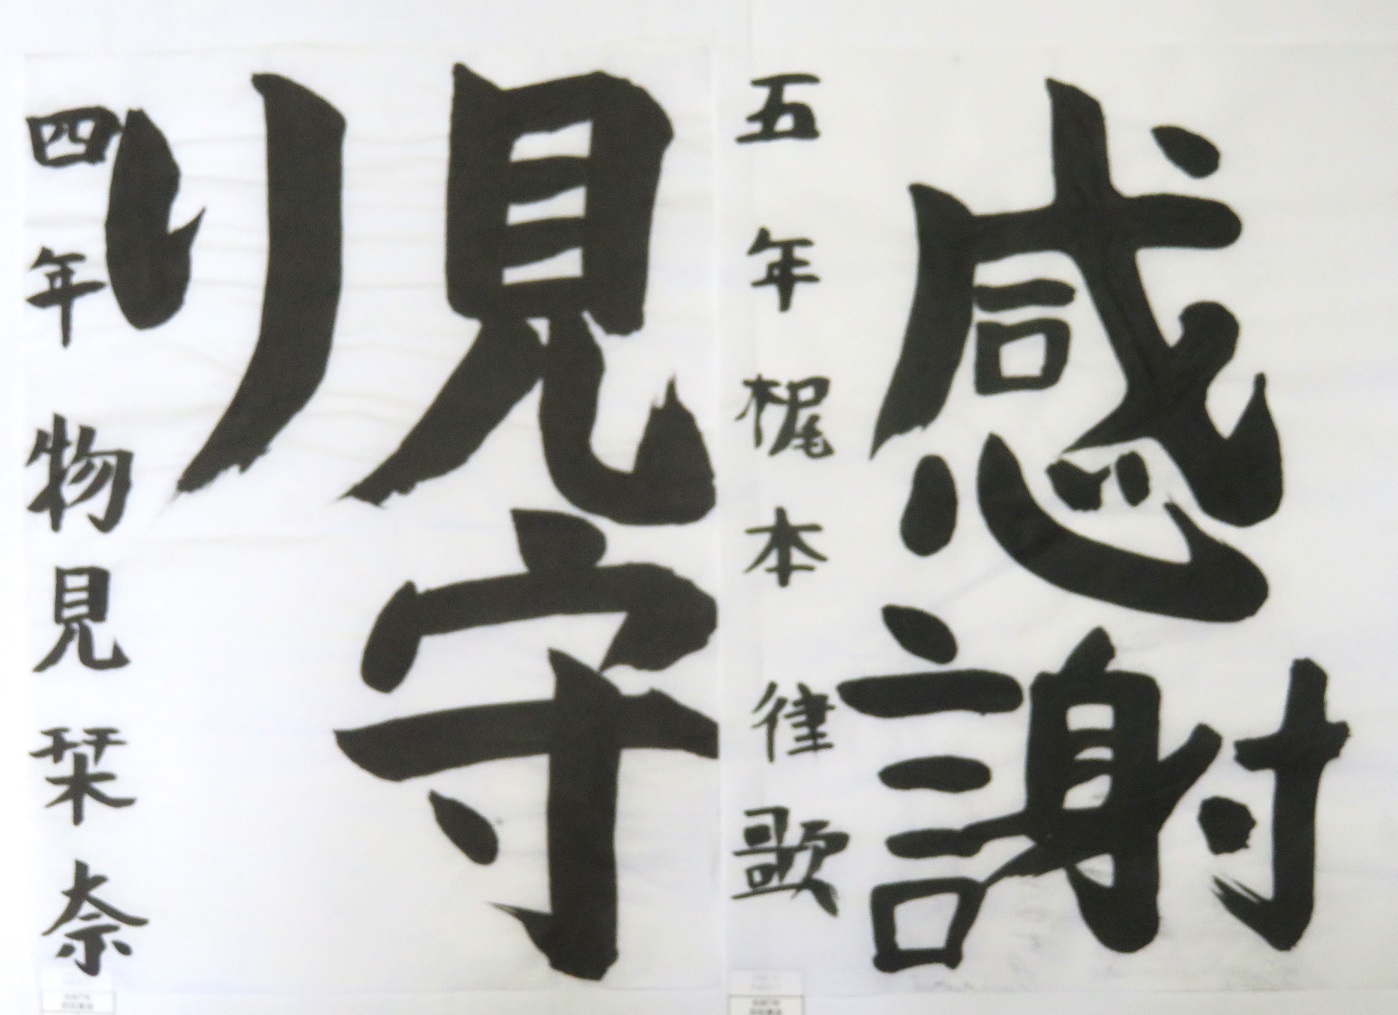 感謝
五年 梶本 律歌
見守
り
四年 物見 栞奈